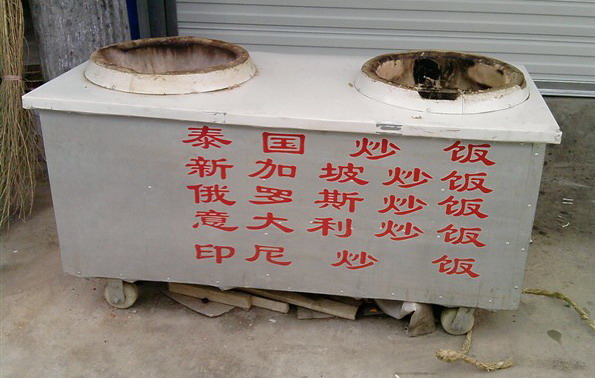 泰国炒饭
新加坡炒饭
俄罗斯炒饭
意大利炒饭
印尼炒饭